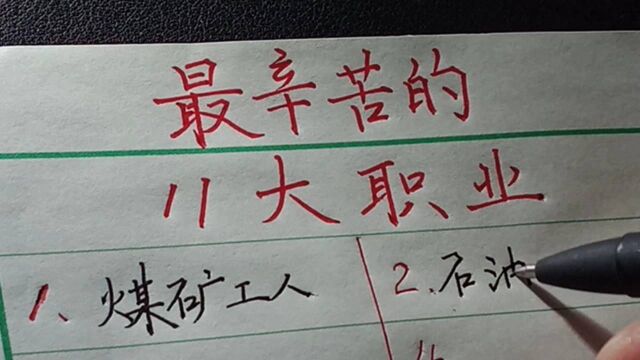 最辛苦的
11大职业
1、煤矿工人 2.石油